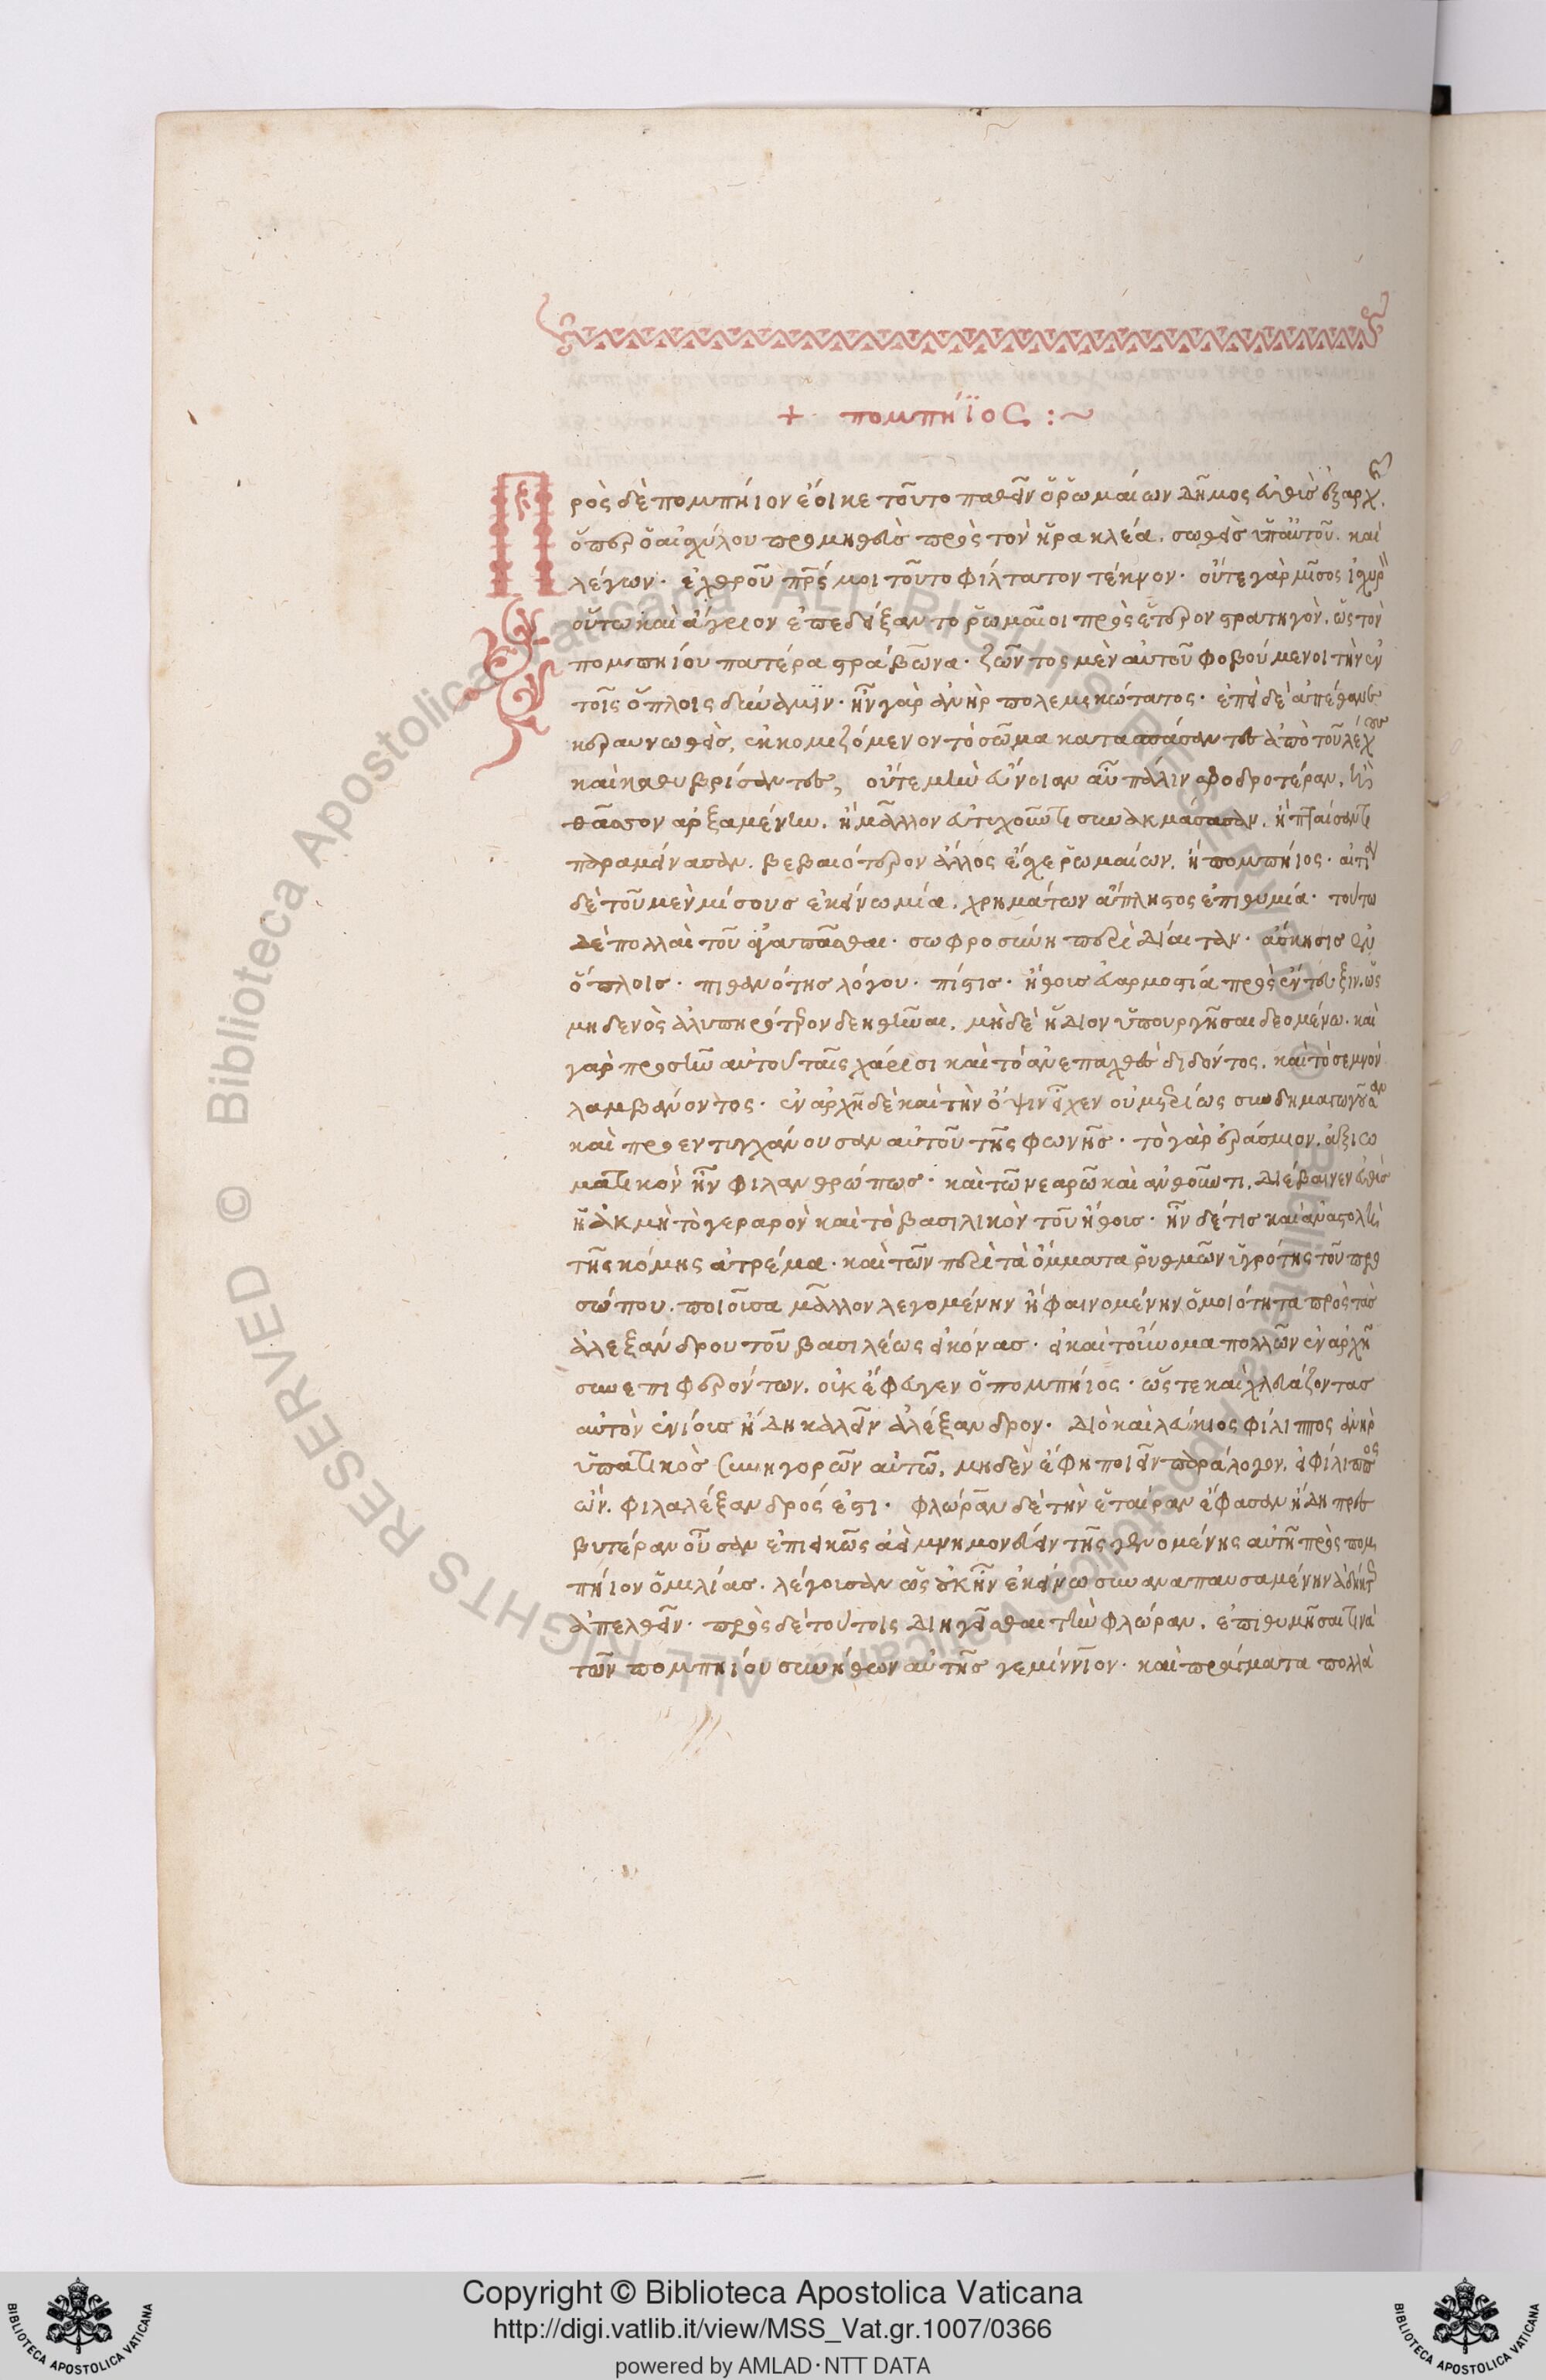 + πομπήϊος :~
Πρὸς δὲ πομπήιον ἔοικε τοῦτο παθεῖν ὁ ῥωμαίων δῆμος εὐθὺς ἐξ ἀρχῆς.
ὅπερ ὁ αἰσχύλου προμηθεὺς πρὸς τὸν ἡρακλέα. σωθεὶς ὑπ' αὐτοῦ. καὶ
λέγων. ἐχθροῦ πατρός μοι τοῦτο φίλτατον τέκνον. οὔτε γὰρ μῖσος ἰσχυρὸν
οὕτω καὶ ἄγριον ἐπεδείξαντο ῥωμαῖοι πρὸς ἕτερον στρατηγὸν. ὡς τὸν
πομπηίου πατέρα στράβωνα. ζῶντος μὲν αὐτοῦ φοβούμενοι τὴν ἐν
τοῖς ὅπλοις δύναμιν. ἦν γὰρ ἀνὴρ πολεμικώτατος. ἐπεὶ δὲ ἀπέθανε
κεραυνωθεὶς, ἐκκομιζόμενον τὸ σῶμα κατασπάσαντες ἀπὸ τοῦ λέχους
καὶ καθυβρίσαντες, οὔτε μὴν εὔνοιαν αὖ πάλιν σφοδροτέραν, ἢ
θᾶσσον ἀρξαμένην. ἢ μᾶλλον εὐτυχοῦντι συνακμάσασαν. ἢ πταίσαντι
παραμείνασαν. βεβαιότερον ἄλλος ἔσχε ῥωμαίων. ἢ πομπήιος. αἰτία
δὲ τοῦ μὲν μίσους ἐκείνω μία. χρημάτων ἄπληστος ἐπιθυμία. τούτω
δὲ πολλαὶ τοῦ ἀγαπᾶσθαι. σωφροσύνη περὶ δίαιταν. ἄσκησις ἐν
ὅπλοις. πιθανότης λόγου. πίστις. ἤθους εὐαρμοστία πρὸς ἔντευξιν. ὡς
μηδενὸς ἀλυπηρότερον δεηθῆναι. μὴδὲ ἥδιον ὑπουργῆσαι δεομένω. καὶ
γὰρ προσῆν αὐτοῦ ταῖς χάρισι καὶ τὸ ἀνεπαχθὲς διδόντος. καὶ τὸ σεμνὸν
λαμβάνοντος. ἐν ἀρχῆ δὲ καὶ τὴν ὄψιν εἶχεν οὐ μετρίως συνδημαγωγοῦσαν
καὶ προεντυγχάνουσαν αὐτοῦ τῆς φωνῆς. τὸ γὰρ ἐράσμιον. ἀξιω
ματικὸν ἦν φιλανθρώπως. καὶ τῶ νεαρῶ καὶ ἀνθοῦντι. διέβαινεν εὐθὺς
ἡ ἀκμὴ τὸ γεραρὸν καὶ τὸ βασιλικὸν τοῦ ἤθους. ἦν δέ τις καὶ ἀναστολὴ
τῆς κόμης ἀτρέμα. καὶ τῶν περὶ τὰ ὄμματα ῥυθμῶν ὑγρότης τοῦ προ
σώπου. ποιοῦσα μᾶλλον λεγομένην ἢ φαινομένην ὁμοιότητα πρὸς τὰς
ἀλεξάνδρου τοῦ βασιλέως εἰκόνας. εἰ καὶ τοὔνομα πολλῶν ἐν ἀρχῆ
συνεπιφερόντων. οὐκ ἔφευγεν ὁ πομπήιος. ὥστε καὶ χλευάζοντας
αὐτὸν ἐνίους ἤδη καλεῖν ἀλέξανδρον. διὸ καὶ λεύκιος φίλιππος ἀνὴρ
ὑπατικὸς συνηγορῶν αὐτῶ. μηδὲν ἔφη ποιεῖν παράλογον. εἰ φίλιππος
ὢν. φιλαλέξανδρός ἐστι. φλώραν δὲ τὴν ἑταίραν ἔφασαν ἤδη πρεσ
βυτέραν οὖσαν ἐπιεικῶς ἀεὶ μνημονεύειν τῆς γενομένης αὐτῆ πρὸς πομ
πήιον ὁμιλίας. λέγουσαν ὡς οὐκ ἦν ἐκείνω συναναπαυσαμένην ἀδήκτως
ἀπελθεῖν. πρὸς δὲ τούτοις διηγεῖσθαι τὴν φλώραν. ἐπιθυμῆσαι τινὰ
τῶν πομπηίου συνήθων αὐτῆς γεμίννιον. καὶ πράγματα πολλὰ
Copyright © Biblioteca Apostolica Vaticana
http://digi.vatlib.it/view/MSS_Vat.gr.1007/0366
powered by AMLAD·NTT DATA
BIBLIOTECA APOSTOLICA VATICANA
BIBLIOTECA APOSTOLICA VATICANA
© Biblioteca Apostolica Vaticana ALL RIGHTS RESERVED
© Biblioteca Apostolica Vaticana ALL RIGHTS RESERVED